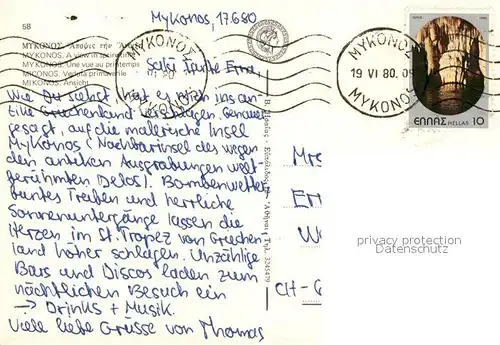 58
Mykonos, 17.6.80
ΜΥΚΟΝΟΣ
MYKONOS. A view in spring
MYKONOS. Une vue au printemps
MICONOS. Veduta primaverile
MYKONOS. Ansicht
ΜΥΚΟΝΟΣ
MYKONOS
ΜΥΚΟΝΟΣ
19 VI 80. 09
MYKONOS
ΕΛΛΑΣ HELLAS 10
Salü Tante Erna,
Wie Du siehst hat es mich ins an
Griechenland verschlagen. Genauer
gesagt, auf die malerische Insel
Mykonos (Nachbarinsel des wegen
den antiken Ausgrabungen welt-
berühmten Delos). Bombenwetter,
buntes Treiben und herrliche
Sonnenuntergänge lassen die
Herzen im St. Tropez von Griechen-
land höher schlagen. Unzählige
Bars und Discos laden zum
nächtlichen Besuch ein
→ Drinks + Musik.
Viele liebe Grüsse von Thomas
Mrs
Er
CH-
privacy protection
Datenschutz